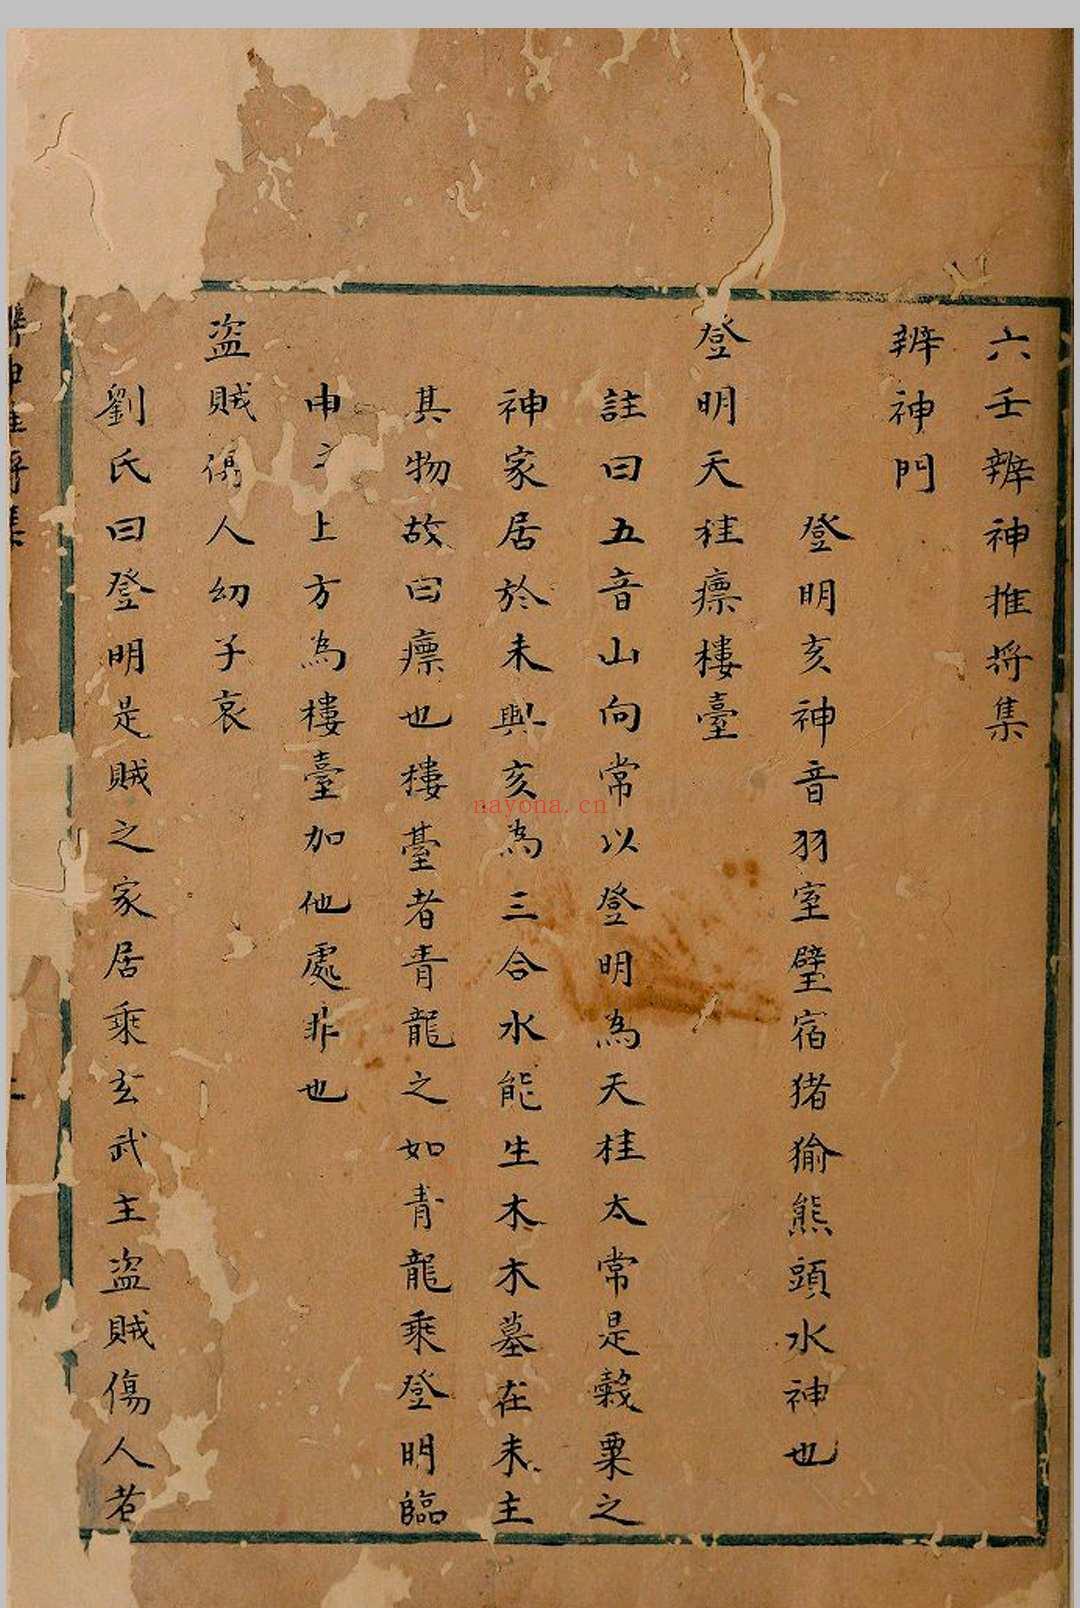 六壬辨神推将集
辨神門
登明亥神音羽室壁宿猪㺄熊頭水神也
登明天桂廪樓臺
註曰五音山向常以登明為天桂太常是穀粟之
神家居於未與亥為三合水能生木木墓在未主
其物故曰廪也樓臺者青龍之如青龍乘登明臨
申之上方為樓臺加他處非也
盗賊傷人幼子哀
劉氏曰登明是賊之家居乘玄武主盗賊傷人若
集
nayona.cn